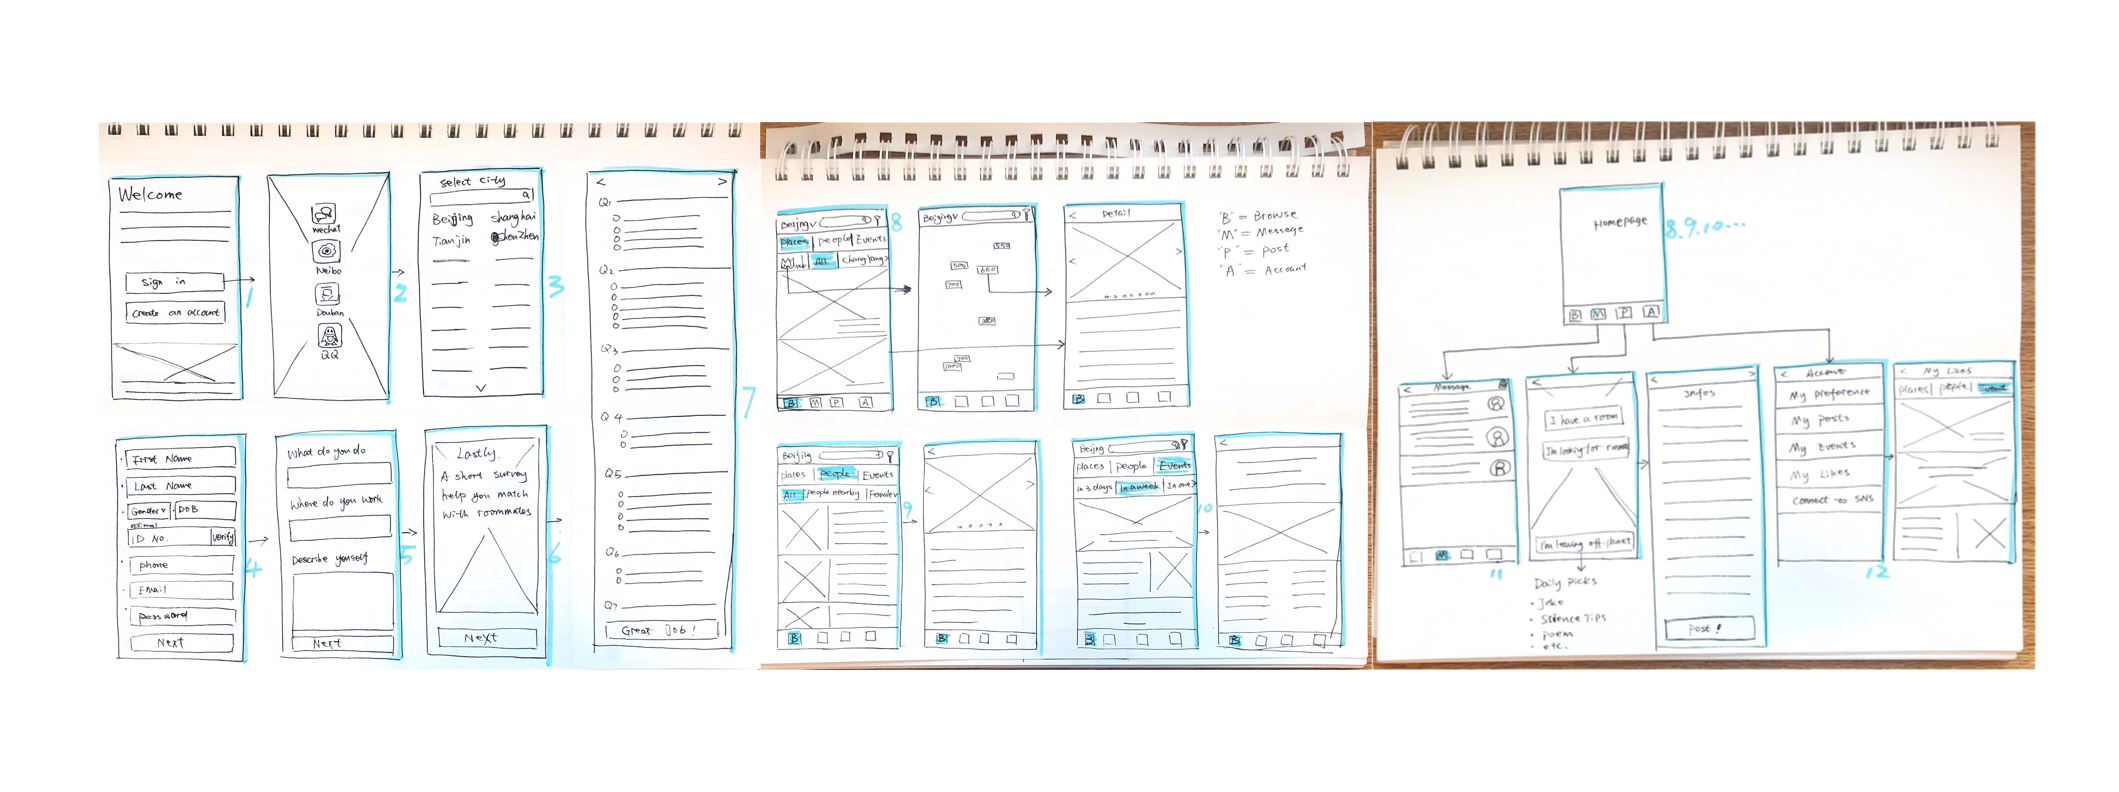 Welcome
Sign in
Create an account
1
wechat
Weibo
Douban
QQ
2
select city
Beijing
shanghai
Tianjin
shenzhen
3
First Name
Last Name
Gender
DOB
optional
ID No.
verify
phone
Email
password
Next
4
What do you do
Where do you work
Describe yourself
Next
5
Lastly.
A short survey
help you match
with roommates
Next
6
< >
Q1
Q2
Q3
Q4
Q5
Q6
Q7
Great job!
7
Beijing
Places | people | Events
All
8
B M P A
Beijing
550
500
600
B
< Detail
B
"B" = Browse
"M" = Message
"P" = post
"A" = Account
Beijing
places | people | Events
All | people nearby | Female
B
9
<
B
Beijing
places | people | Events
in 3 days | in a week | In one >
B
10
<
B
Homepage
8.9.10...
B M P A
< Message
M
11
<
I have a room
I'm looking for
Daily picks
• Joke
• Science Tips
• poem
• etc.
< >
Infos
post!
< Account
My preference
My posts
My Events
My Likes
Connect to SNS
12
< My Likes
places | people |